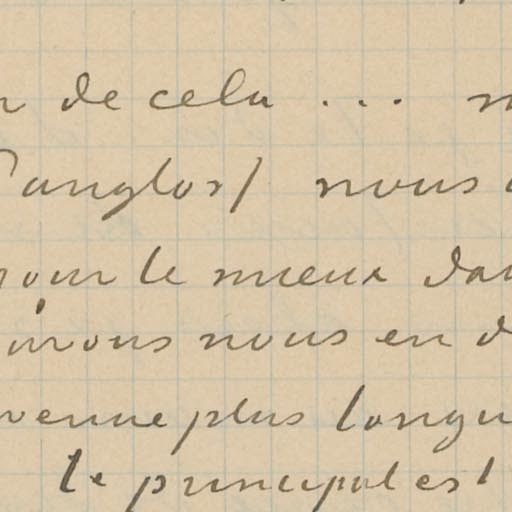 de cela ...
Panglos) nous
pour le mieux dan
irons nous en d
venue plus longu
le principal est